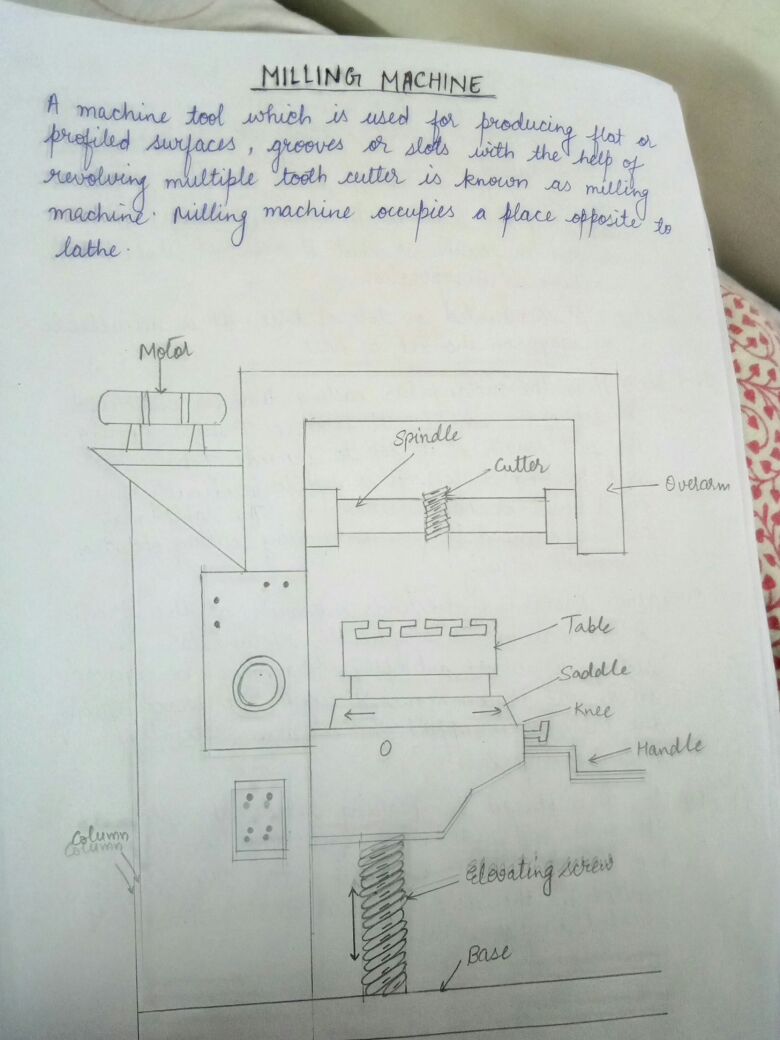 MILLING MACHINE
A machine tool which is used for producing flat or
profiled surfaces, grooves or slots with the help of
revolving multiple tooth cutter is known as milling
machine. Milling machine occupies a place opposite to
lathe.
Motor
Spindle
Cutter
Overarm
Table
Saddle
Knee
Handle
Column
Elevating screw
Base